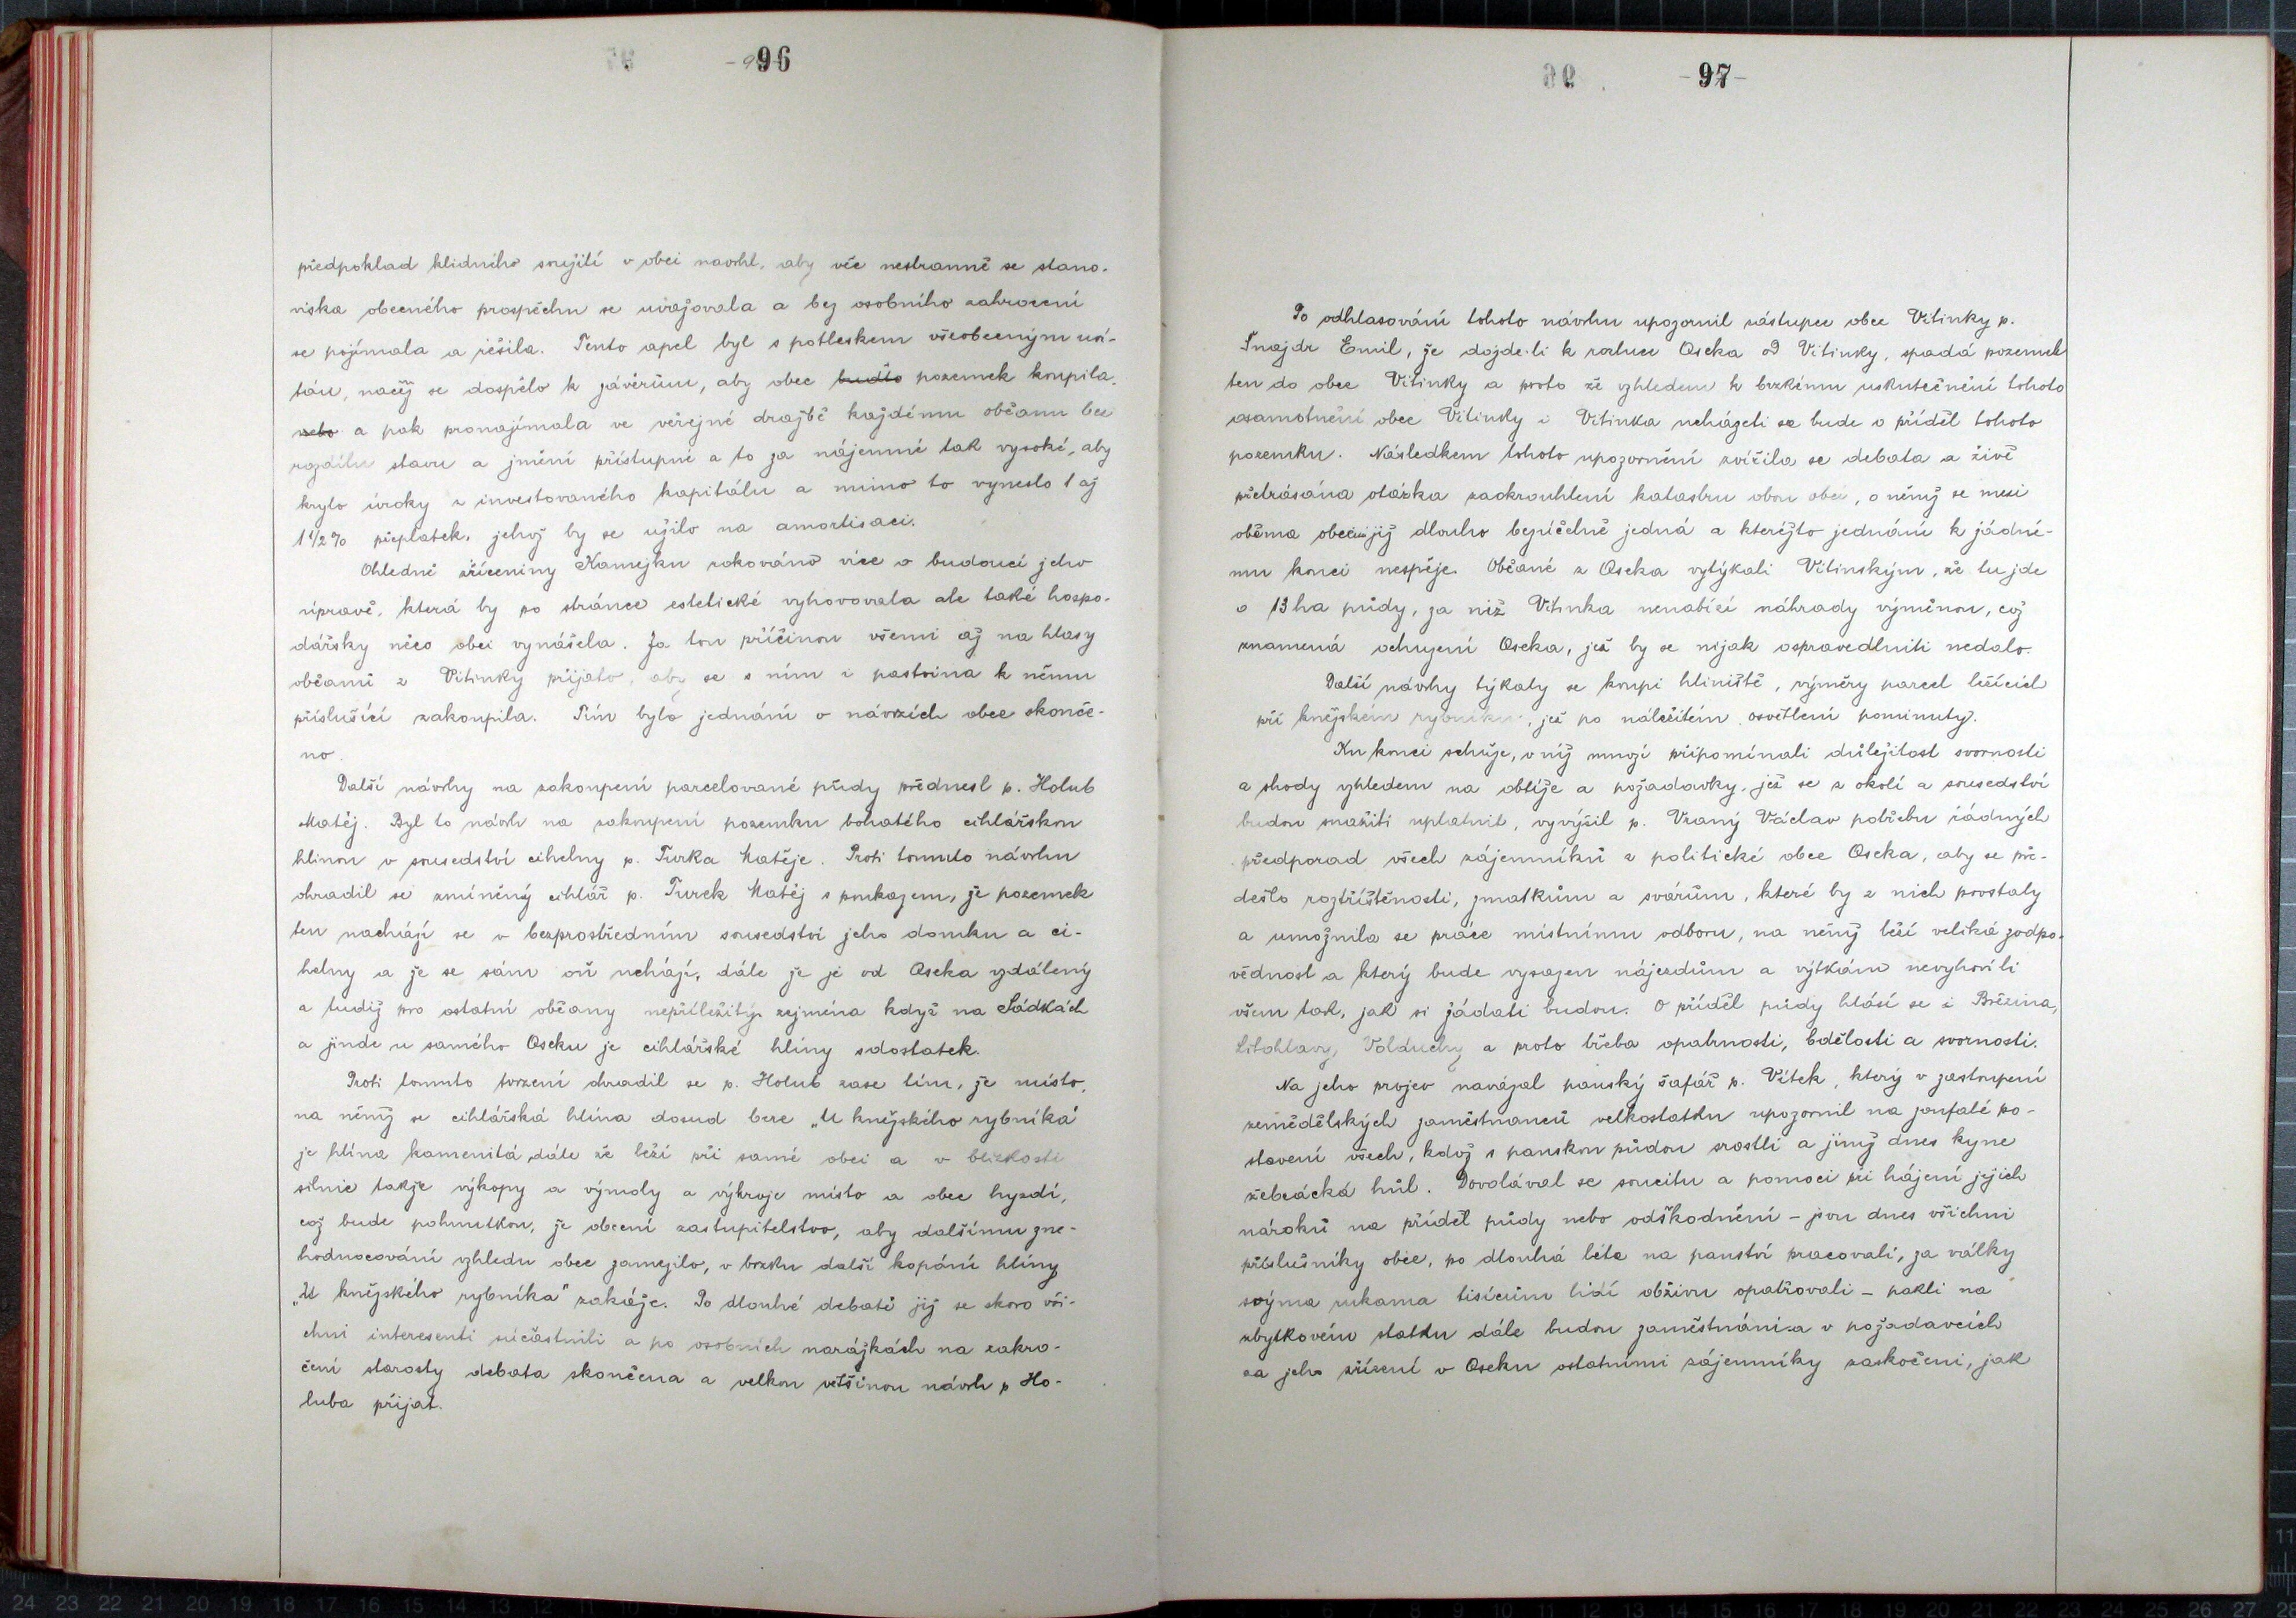 96
předpoklad klidného soužití v obci navrhl, aby věc nestranně se stano-
viska obecného prospěchu se uvažovala a bez osobního zahrocení
se pojímala a řešila. Tento apel byl s potleskem všeobecným uví-
tán, načež se dospělo k závěrům, aby obec budto pozemek koupila,
nebo a pak pronajímala ve veřejné dražbě každému občanu bez
rozdílu stavu a jmění přístupné a to za nájemné tak vysoké, aby
krylo úroky z investovaného kapitálu a mimo to vyneslo 1 až
1 1/2 % příplatek, jehož by se užilo na amortisaci.
Ohledně zříceniny Kamejku rokováno více o budoucí jeho
úpravě, která by po stránce estetické vyhovovala ale také hospo-
dářsky něco obci vynášela. Za tou příčinou všemi až na hlasy
občanů z Vitinky přijato, aby se s ním i pastvina k němu
příslušící zakoupila. Tím bylo jednání o návrzích obce skonče-
no.
Další návrhy na zakoupení parcelované půdy přednesl p. Holub
Matěj. Byl to návrh na zakoupení pozemku bohatého cihlářskou
hlinou v sousedství cihelny p. Turka Matěje. Proti tomuto návrhu
ohradil se zmíněný cihlář p. Turek Matěj s poukazem, že pozemek
ten nachází se v bezprostředním sousedství jeho domku a ci-
helny a že se sám oň uchází, dále že je od Oseka vzdálený
a tudíž pro ostatní občany nepříležitý, zejména když na Sádkách
a jinde u samého Oseku je cihlářské hlíny sdostatek.
Proti tomuto tvrzení ohradil se p. Holub zase tím, že místo,
na němž se cihlářská hlína dosud bere „U kněžského rybníka"
je hlína kamenitá, dále že leží při samé obci a v blízkosti
silnic takže výkopy a výmoly a výkroje místo a obec hyzdí,
což bude pohnutkou, že obecní zastupitelstvo, aby dalšímu zne-
hodnocování vzhledu obce zamezilo, v brzku další kopání hlíny
„U kněžského rybníka" zakáže. Po dlouhé debatě jíž se skoro vši-
chni interesenti súčastnili a po osobních narážkách na zakro-
čení starosty debata skončena a velkou většinou návrh p Ho-
luba přijat.
-97-
Po odhlasování tohoto návrhu upozornil zástupce obce Vitinky p.
Šnajdr Emil, že dojde-li k rozluce Oseka od Vitinky, spadá pozemek
ten do obce Vitinky a proto že vzhledem k brzkému uskutečnění tohoto
osamotnění obec Vitinky i Vitinka ucházeti se bude o příděl tohoto
pozemku. Následkem tohoto upozornění zvířila se debata a živě
přetřásána otázka zaokrouhlení katastru obou obcí, o němž se mezi
oběma obcemi již dlouho bezúčelně jedná a kteréžto jednání k žádné-
mu konci nespěje. Občané z Oseka vytýkali Vitinským, že tu jde
o 13 ha půdy, za niž Vitinka nenabízí náhrady výměnou, což
znamená ochuzení Oseka, jež by se nijak ospravedlniti nedalo.
Další návrhy týkaly se koupi hliniště, výměry parcel ležících
při kněžském rybníku, jež po náležitém osvětlení pominuty.
Ku konci schůze, v níž mnozí připomínali důležitost svornosti
a shody vzhledem na obtíže a požadavky, jež se z okolí a sousedství
budou snažiti uplatnit, vyvýšil p. Vraný Václav potřebu řádných
předporad všech zájemníků z politické obce Oseka, aby se pře-
dešlo roztříštěnosti, zmatkům a svárům, které by z nich povstaly
a umožnila se práce místnímu odboru, na němž leží veliká zodpo-
vědnost a který bude vysazen nájezdům a výtkám nevyhoví-li
všem tak, jak si žádati budou. O příděl půdy hlásí se i Březina,
Litohlavy, Volduchy a proto třeba opatrnosti, bdělosti a svornosti.
Na jeho projev navázal panský šafář p. Vítek, který v zastoupení
zemědělských zaměstnanců velkostatku upozornil na zoufalé po-
stavení všech, kdož s panskou půdou srostli a jimž dnes kyne
žebrácká hůl. Dovolával se soucitu a pomoci při hájení jejich
nároků na příděl půdy nebo odškodnění - jsou dnes všichni
příslušníky obce, po dlouhá léta na panství pracovali, za války
svýma rukama tisícům lidí obživu opatřovali - pakli na
zbytkovém statku dále budou zaměstnáni a v požadavcích
za jeho zřízení v Oseku ostatními zájemníky zaskočeni, jak